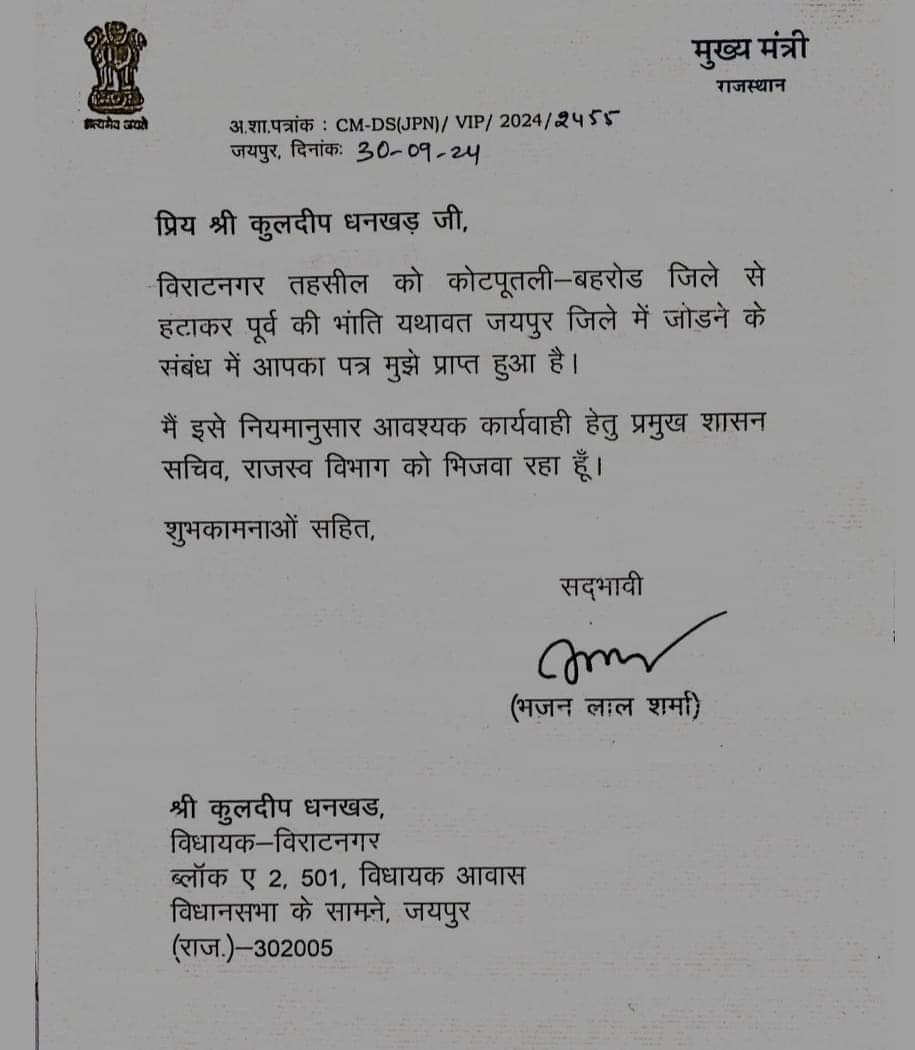 मुख्य मंत्री
राजस्थान
सत्यमेव जयते
अ.शा.पत्रांक : CM-DS(JPN)/ VIP/ 2024/2455
जयपुर, दिनांकः 30-09-24
प्रिय श्री कुलदीप धनखड़ जी,
विराटनगर तहसील को कोटपूतली–बहरोड जिले से
हटाकर पूर्व की भांति यथावत जयपुर जिले में जोडने के
संबंध में आपका पत्र मुझे प्राप्त हुआ है।
मैं इसे नियमानुसार आवश्यक कार्यवाही हेतु प्रमुख शासन
सचिव, राजस्व विभाग को भिजवा रहा हूँ।
शुभकामनाओं सहित,
सद्भावी
(भजन लाल शर्मा)
श्री कुलदीप धनखड,
विधायक–विराटनगर
ब्लॉक ए 2, 501, विधायक आवास
विधानसभा के सामने, जयपुर
(राज.)–302005